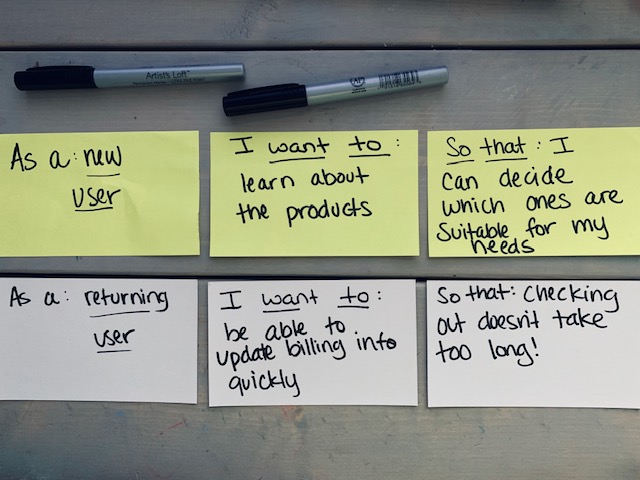 Artist's Loft
As a: new
user
I want to:
learn about
the products
So that: I
can decide
which ones are
suitable for my
needs
As a: returning
user
I want to:
be able to
update billing info
quickly
So that: Checking
out doesn't take
too long!